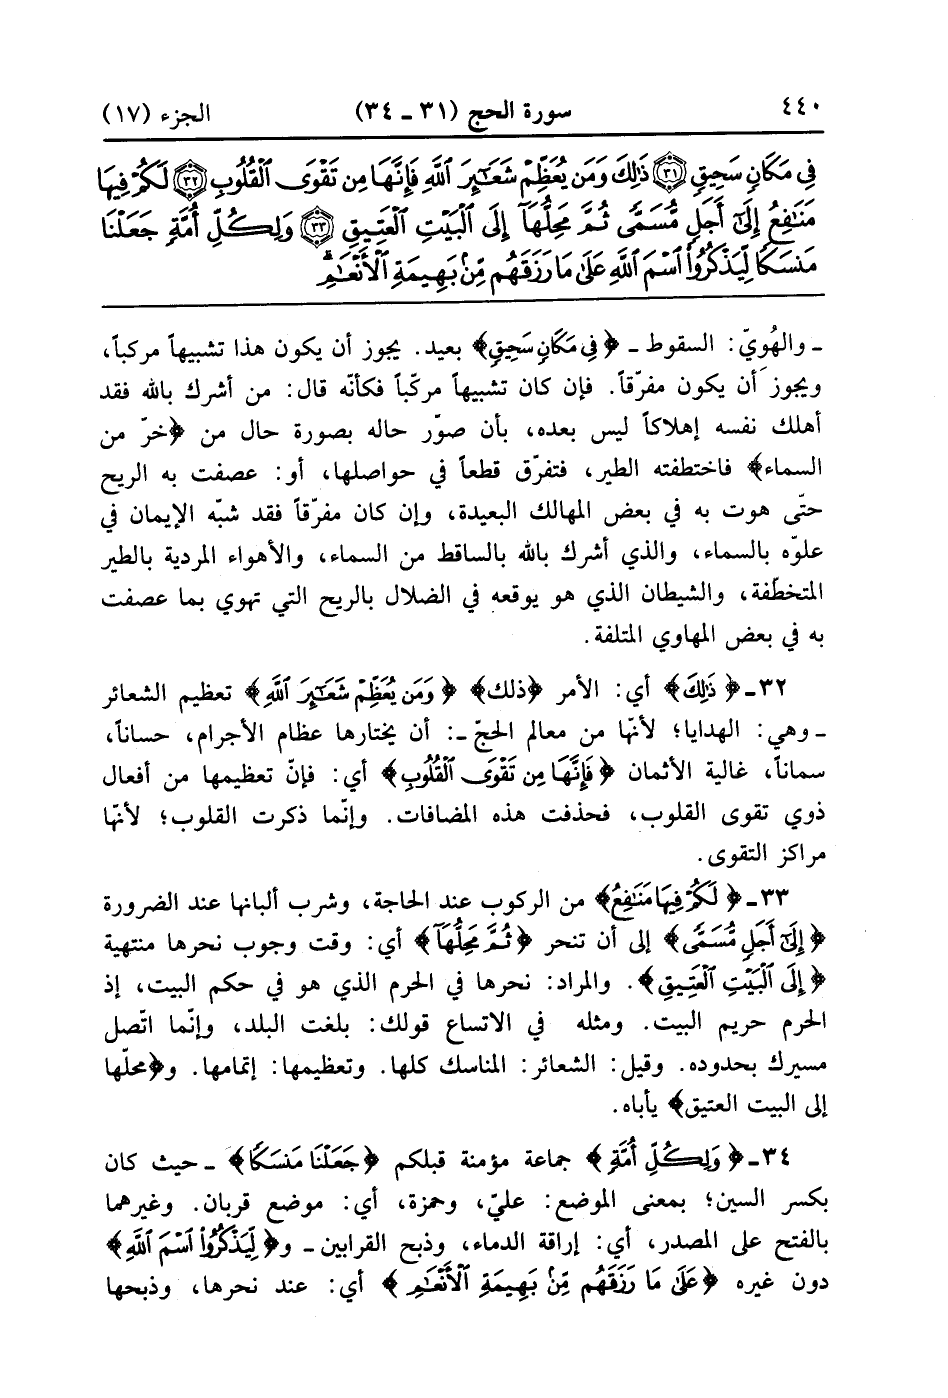 ٤٤٠ سورة الحج (٣١ - ٣٤) الجزء (١٧)
فِى مَكَانٍ سَحِيقٍ ﴿٣١﴾ ذَٰلِكَ وَمَن يُعَظِّمْ شَعَـٰٓئِرَ ٱللَّهِ فَإِنَّهَا مِن تَقْوَى ٱلْقُلُوبِ ﴿٣٢﴾ لَكُمْ فِيهَا
مَنَـٰفِعُ إِلَىٰٓ أَجَلٍ مُّسَمًّى ثُمَّ مَحِلُّهَآ إِلَى ٱلْبَيْتِ ٱلْعَتِيقِ ﴿٣٣﴾ وَلِكُلِّ أُمَّةٍ جَعَلْنَا
مَنسَكًا لِّيَذْكُرُوا۟ ٱسْمَ ٱللَّهِ عَلَىٰ مَا رَزَقَهُم مِّنۢ بَهِيمَةِ ٱلْأَنْعَـٰمِ ۗ
ـ والهُويّ: السقوط ـ ﴿فِى مَكَانٍ سَحِيقٍ﴾ بعيد. يجوز أن يكون هذا تشبيهاً مركباً،
ويجوز أن يكون مفرّقاً. فإن كان تشبيهاً مركّباً فكأنّه قال: من أشرك بالله فقد
أهلك نفسه إهلاكاً ليس بعده، بأن صوّر حاله بصورة حال من ﴿خرّ من
السماء﴾ فاختطفته الطير، فتفرّق قطعاً في حواصلها، أو: عصفت به الريح
حتّى هوت به في بعض المهالك البعيدة، وإن كان مفرّقاً فقد شبّه الإيمان في
علوّه بالسماء، والذي أشرك بالله بالساقط من السماء، والأهواء المردية بالطير
المتخطّفة، والشيطان الذي هو يوقعه في الضلال بالريح التي تهوي بما عصفت
به في بعض المهاوي المتلفة.
٣٢ـ ﴿ذَٰلِكَ﴾ أي: الأمر ﴿ذلك﴾ ﴿وَمَن يُعَظِّمْ شَعَـٰٓئِرَ ٱللَّهِ﴾ تعظيم الشعائر
ـ وهي: الهدايا؛ لأنّها من معالم الحجّ ـ: أن يختارها عظام الأجرام، حساناً،
سماناً، غالية الأثمان ﴿فَإِنَّهَا مِن تَقْوَى ٱلْقُلُوبِ﴾ أي: فإنّ تعظيمها من أفعال
ذوي تقوى القلوب، فحذفت هذه المضافات. وإنّما ذكرت القلوب؛ لأنّها
مراكز التقوى.
٣٣ـ ﴿لَكُمْ فِيهَا مَنَـٰفِعُ﴾ من الركوب عند الحاجة، وشرب ألبانها عند الضرورة
﴿إِلَىٰٓ أَجَلٍ مُّسَمًّى﴾ إلى أن تنحر ﴿ثُمَّ مَحِلُّهَآ﴾ أي: وقت وجوب نحرها منتهية
﴿إِلَى ٱلْبَيْتِ ٱلْعَتِيقِ﴾. والمراد: نحرها في الحرم الذي هو في حكم البيت، إذ
الحرم حريم البيت. ومثله في الاتساع قولك: بلغت البلد، وإنّما اتّصل
مسيرك بحدوده. وقيل: الشعائر: المناسك كلها. وتعظيمها: إتمامها. و﴿محلّها
إلى البيت العتيق﴾ يأباه.
٣٤ـ ﴿وَلِكُلِّ أُمَّةٍ﴾ جماعة مؤمنة قبلكم ﴿جَعَلْنَا مَنسَكًا﴾ ـ حيث كان
بكسر السين؛ بمعنى الموضع: عليّ، وحمزة، أي: موضع قربان. وغيرهما
بالفتح على المصدر، أي: إراقة الدماء، وذبح القرابين ـ و﴿لِيَذْكُرُوا۟ ٱسْمَ ٱللَّهِ﴾
دون غيره ﴿عَلَىٰ مَا رَزَقَهُم مِّنۢ بَهِيمَةِ ٱلْأَنْعَـٰمِ﴾ أي: عند نحرها، وذبحها